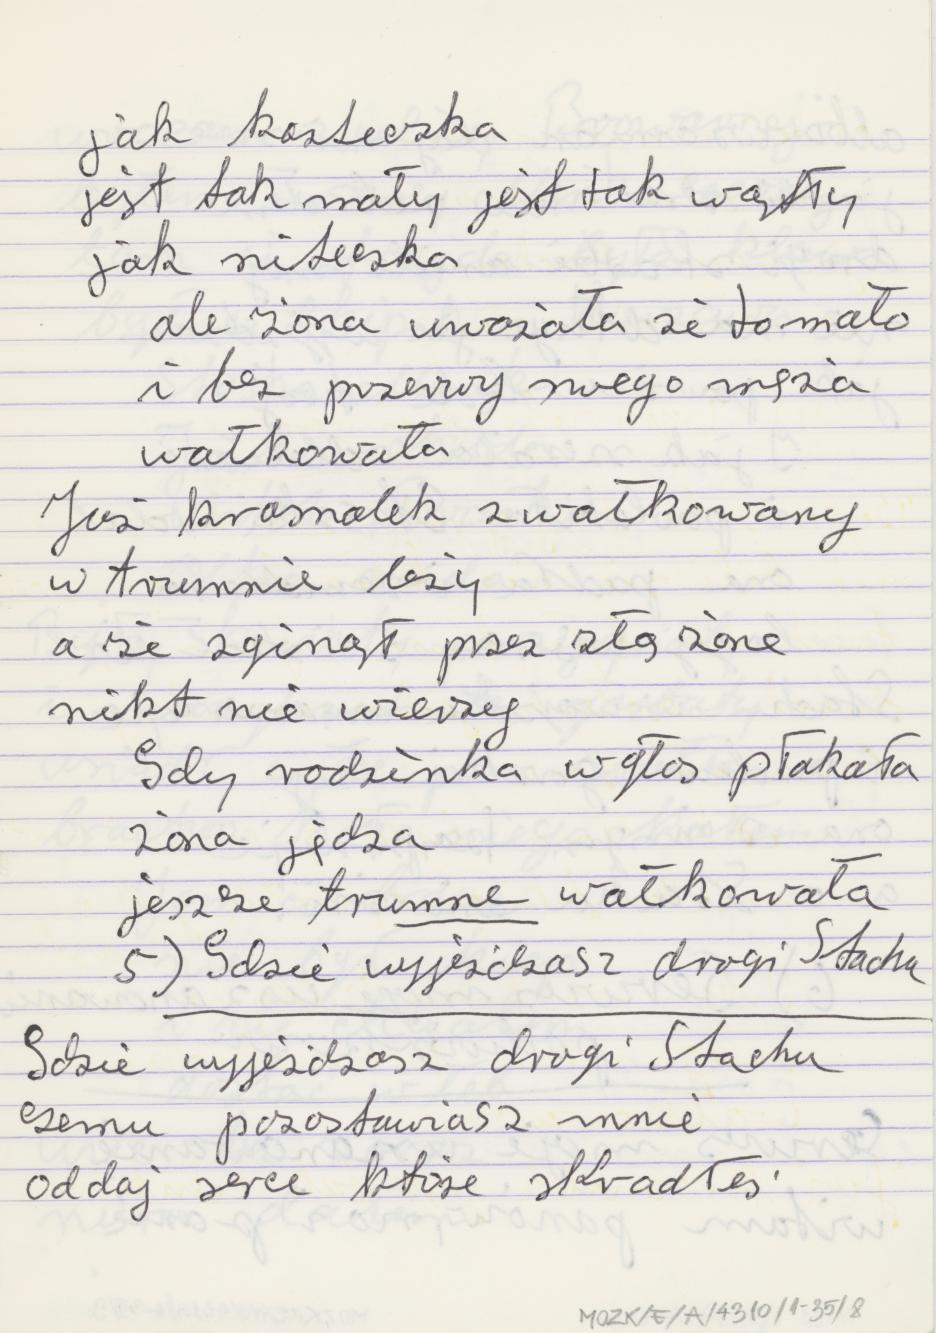 jak kosteczka
jest tak mały jest tak wąstły
jak niteczka
ale żona uważała że to mało
i bez przerwy swego męża
wałkowała
Już kramalek zwałkowany
w trumnie leży
a że zginął przez złą żone
nikt nie wierzy
Gdy rodzinka w głos płakała
żona jędza
jeszcze trumne wałkowała
5) Gdzie wyjeżdzasz drogi Stachu
Gdzie wyjeżdzasz drogi Stachu
czemu pozostawiasz mnie
oddaj serce któże skradłeś
MOZK/E/A/4310/1-35/8